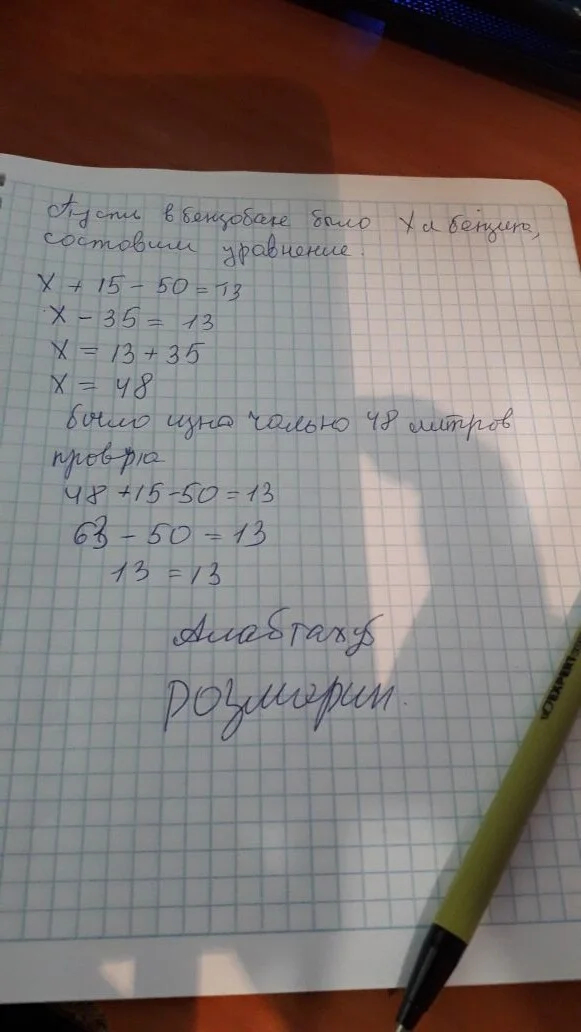 Пусть в бензобаке было х л бензина,
составим уравнение.
х + 15 - 50 = 13
х - 35 = 13
х = 13 + 35
х = 48
было изначально 48 литров
проврю
48 + 15 - 50 = 13
63 - 50 = 13
13 = 13
Розмарин.
EXPERT